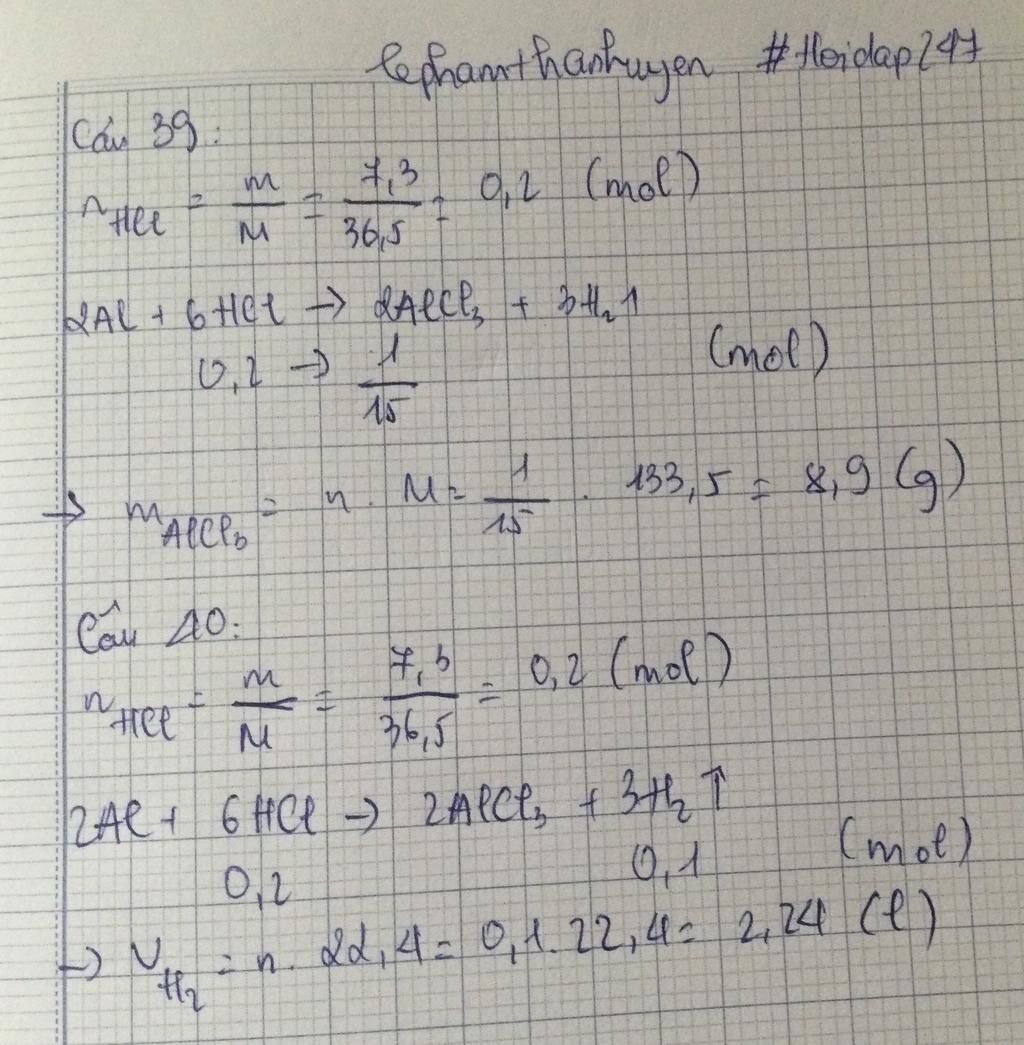 lephamthanhuyen #Hoidap247
Câu 39:
n HCl = m/M = 7,3/36,5 = 0,2 (mol)
2Al + 6HCl → 2AlCl₃ + 3H₂↑
0,2 → 1/15 (mol)
→ m AlCl₃ = n . M = 1/15 . 133,5 = 8,9 (g)
Câu 40:
n HCl = m/M = 7,3/36,5 = 0,2 (mol)
2Al + 6HCl → 2AlCl₃ + 3H₂↑
0,2 0,1 (mol)
→ V H₂ = n. 22,4 = 0,1. 22,4 = 2,24 (l)